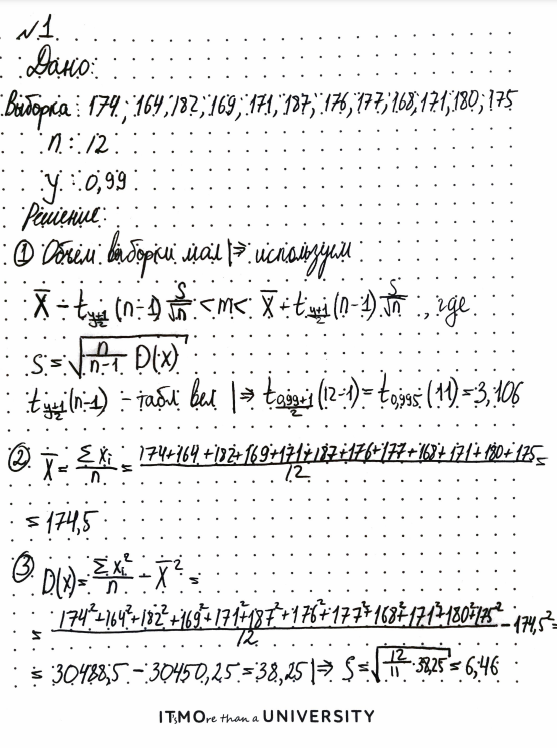 №1
Дано:
Выборка: 174; 164; 182; 169; 171; 187; 176; 177; 168; 171; 180; 175
n: 12
γ: 0,99
Решение:
① Объём выборки мал |⇒ используем
X̄ - t_{(γ+1)/2} (n-1) S/√n < m < X̄ + t_{(γ+1)/2} (n-1) S/√n , где
S = √(n/(n-1) D(x))
t_{(γ+1)/2}(n-1) - табл вел |⇒ t_{(0,99+1)/2}(12-1) = t_{0,995}(11) = 3,106
② X̄ = ∑xᵢ/n = (174+164+182+169+171+187+176+177+168+171+180+175)/12 =
= 174,5
③ D(x) = ∑xᵢ²/n - X̄² =
= (174²+164²+182²+169²+171²+187²+176²+177²+168²+171²+180²+175²)/12 - 174,5² =
= 30488,5 - 30450,25 = 38,25 |⇒ S = √(12/11 · 38,25) = 6,46
IT'sMOre than a UNIVERSITY